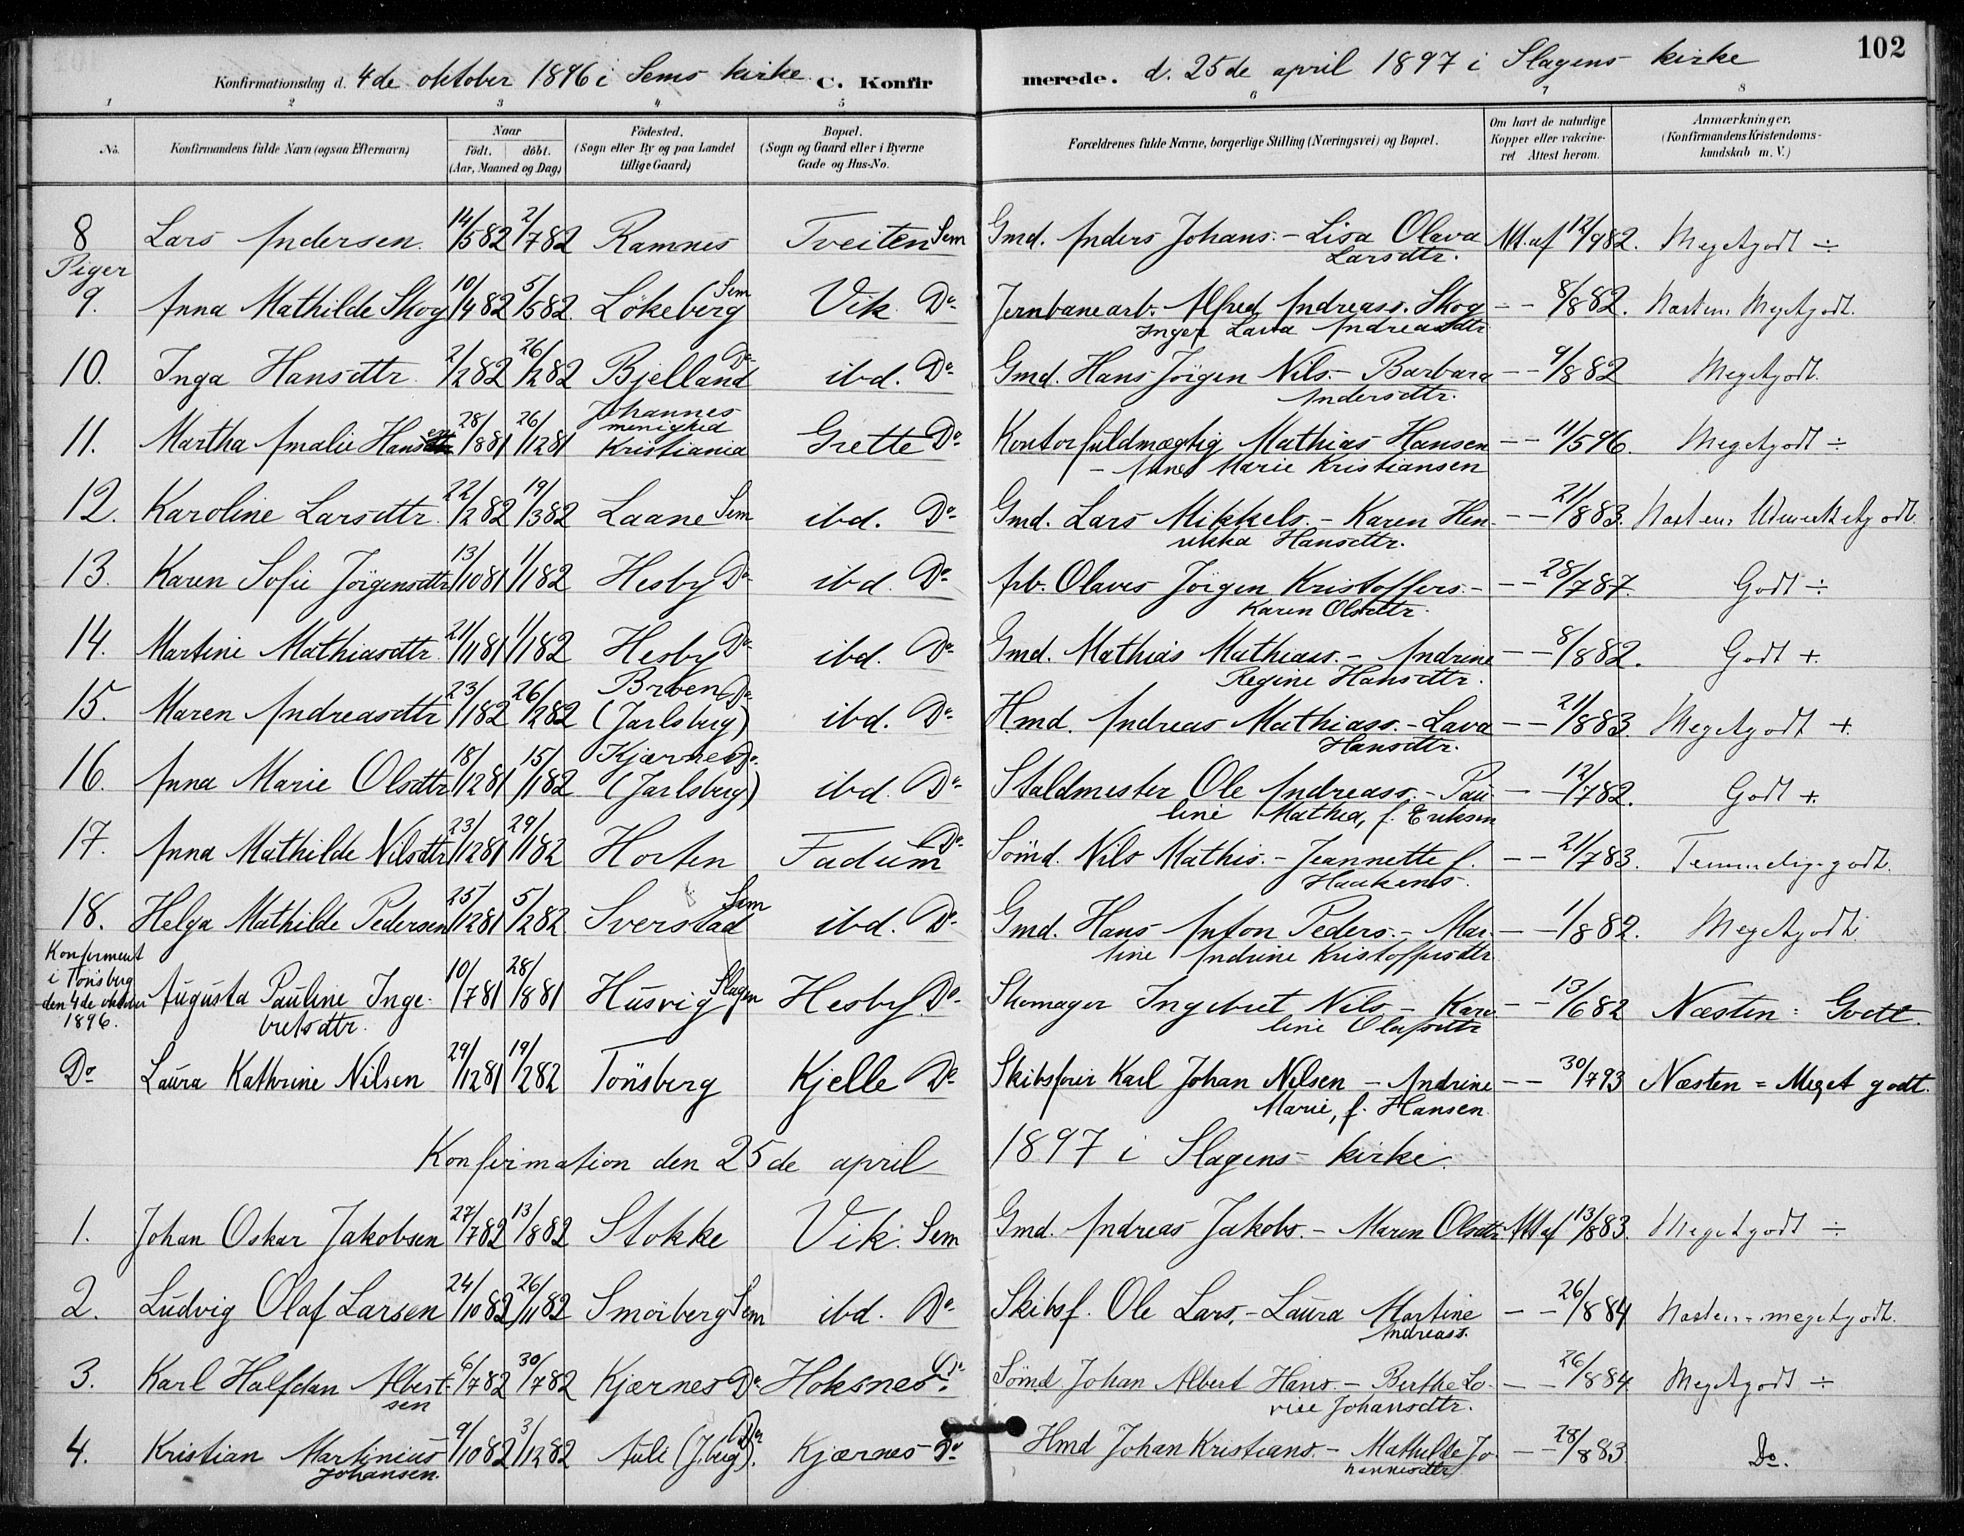 102
Konfirmationsdag d. 4de oktober 1896 i Sems kirke. C. Konfirmerede. d. 25de april 1897 i Slagens kirke
1 2 3 4 5 6 7 8
No. Konfirmandens fulde Navn (ogsaa Efternavn) Naar födt. döbt. (Aar, Maaned og Dag) Födested. (Sogn eller By og paa Landet tillige Gaard) Bopæl. (Sogn og Gaard eller i Byerne Gade og Hus-No. Forældrenes fulde Navne, borgerlige Stilling (Næringsvei) og Bopæl. Om havt de naturlige Kopper eller vakcineret Attest herom. Anmærkninger. (Konfirmandens Kristendomskundskab m. V.)
8 Lars Andersen. 14/5 82 2/7 82 Ramnes Tveiten Sem Gmd. Anders Johans. - Lisa Olava Larsdtr. Att. af 12/9 82. Megetgodt ÷
Piger
9. Anna Mathilde Skog 10/4 82 5/5 82 Lökeberg Sem Vik Do Jernbanearb. Alfred Andreass. Skog Inger Lava Andreasdtr - - 8/8 82. Næsten Megetgodt.
10. Inga Hansdtr. 2/2 82 26/2 82 Bjelland Do ibd. Do Gmd. Hans Jörgen Nils. - Barbara Andersdtr. - - 9/8 82 Megetgodt.
11. Martha Amalie Hansen 28/8 81 26/12 81 Johannes menighed Kristiania Grette Do Kontorfuldmægtig Mathias Hansen - Anne Marie Kristiansen - - 11/5 96. Megetgodt ÷
12. Karoline Larsdtr. 22/2 82 19/3 82 Laane Sem ibd. Do Gmd. Lars Mikkels. - Karen Henrikka Hansdtr. - - 21/8 83. Næsten Udmerketgodt.
13. Karen Sofie Jörgensdtr 13/10 81 1/1 82 Hesby Do ibd. Do Arb. Olaves Jörgen Kristoffers. - Karen Olsdtr. - - 28/7 87. Godt ÷
14. Martine Mathiasdtr. 21/11 81 1/1 82 Hesby Do ibd. Do Gmd. Mathias Mathiass. - Andrine Regine Hansdtr. - - 8/8 82. Godt +.
15. Maren Andreasdtr 23/1 82 26/2 82 Do (Jarlsberg) ibd. Do Hmd. Andreas Mathiass. - Lava Hansdtr. - - 21/8 83 Megetgodt +.
16. Anna Marie Olsdtr 18/12 81 15/1 82 Kjærnes Do. (Jarlsberg) ibd. Do Staldmester Ole Andreass. - Pauline Mathea, f. Eriksen - - 12/7 82. Godt +.
17. Anna Mathilde Nilsdtr 23/12 81 29/1 82 Horten Fadum Do Sömd. Nils Mathis. - Jeannette f. Haakens. - - 21/7 83. Temmelig-godt.
18. Helga Mathilde Pedersen 25/12 81 5/2 82 Sverstad Sem ibd. Do Gmd. Hans Anton Peders. - Marline Andrine Kristoffersdtr - - 1/8 82. Megetgodt
Konfirmert i Tönsberg den 4de oktober 1896. Augusta Pauline Ingebretsdtr. 10/7 81 28/8 81 Husvig Slagen Hesby Do Skomager Ingebret Nils. - Karoline Olafsdtr - - 13/6 82 Næsten = Godt.
Do Laura Kathrine Nilsen 29/12 81 19/2 82 Tönsberg Kjelle Do Skibsförer Karl Johan Nilsen - Andrine Marie, f. Hansen. - - 30/7 93 Næsten = Meget godt.
Konfirmation den 25de april 1897 i Slagens kirke.
1. Johan Oskar Jakobsen 27/7 82 13/8 82 Stokke Vik. Sem Gmd. Andreas Jakobs. - Maren Olsdtr Att af 13/8 83. Megetgodt ÷
2. Ludvig Olaf Larsen 24/10 82 26/11 82 Smörberg Sem ibd. Do Skibsf. Ole Lars. - Laura Martine Andreass. - - 26/8 84 Næsten = megetgodt.
3. Karl Halfdan Albertsen 6/7 82 30/7 82 Kjærnes Do Hoksnes Do. Sömd. Johan Albert Hans. - Berthe Lovise Johansdtr. - - 26/8 84 Megetgodt ÷
4. Kristian Martinius Johansen. 9/10 82 3/12 82 Auli (J.berg). Do Kjærnes Do Hmd Johan Kristians. - Mathilde Johannesdtr - - 28/8 83. Do.